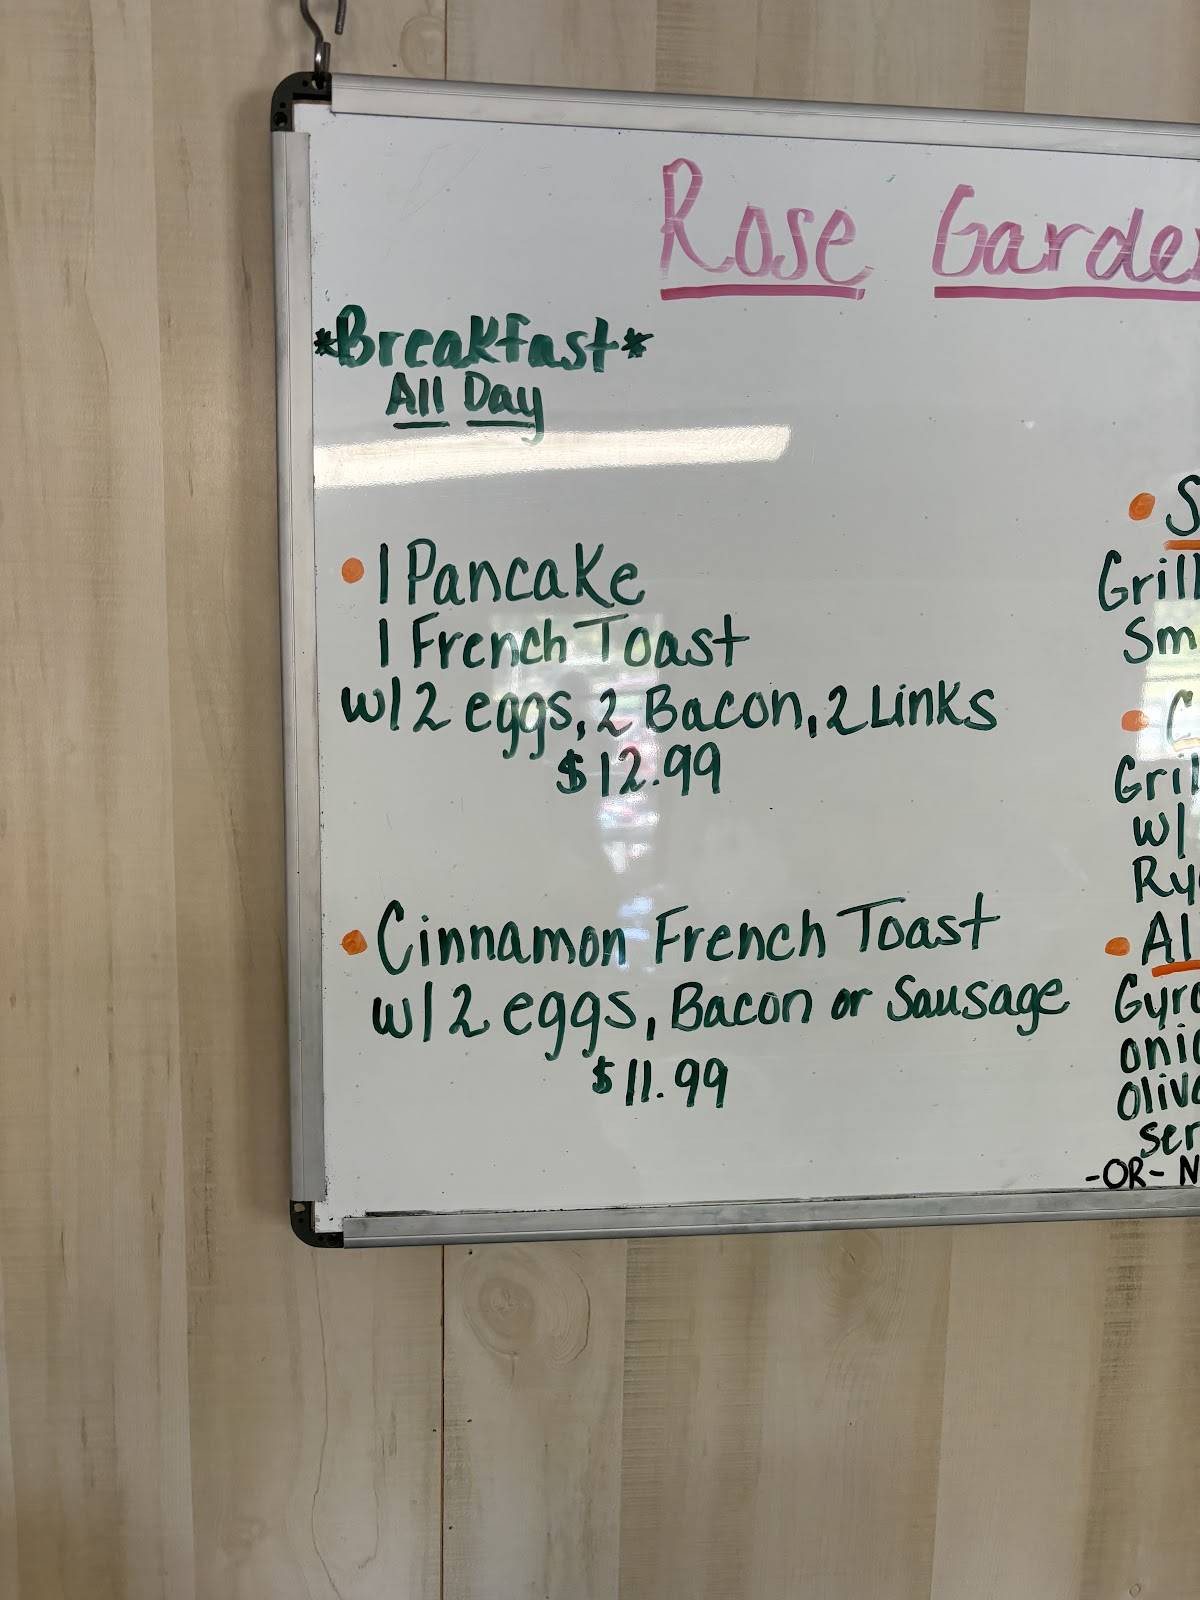 Rose Garde
*Breakfast*
All Day
• 1 Pancake
1 French Toast
w/ 2 eggs, 2 Bacon, 2 Links
$12.99
• Cinnamon French Toast
w/ 2 eggs, Bacon or Sausage
$11.99
• S
Grill
Sm
• C
Gril
w/
Ry
• Al
Gyro
oni
oliv
ser
-OR- N